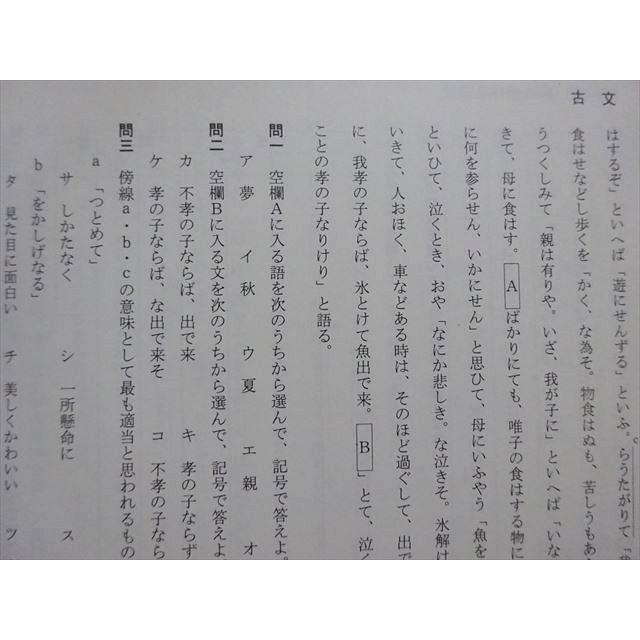 古文
はするぞ」といへば「遊にせんずる」といふ。らうたがりて
c
食はせなどし歩くを「かく、な為そ。物食はぬも、苦しうもあ
うつくしみて「親は有りや。いざ、我が子に」といへば「いな
きて、母に食はす。Aばかりにても、唯子の食はする物に
に何を参らせん、いかにせん」と思ひて、母にいふやう「魚を
といひて、泣くとき、おや「なにか悲しき。な泣きそ。氷解け
いきて、人おほく、車などある時は、そのほど過ぐして、出で
に、我孝の子ならば、氷とけて魚出で来。Bとて、泣く
ことの孝の子なりけり」と語る。
問一 空欄Aに入る語を次のうちから選んで、記号で答えよ。
ア 夢 イ 秋 ウ 夏 エ 親 オ
問二 空欄Bに入る文を次のうちから選んで、記号で答えよ
カ 不孝の子ならば、出で来 キ 孝の子ならず
ケ 孝の子ならば、な出で来そ コ 不孝の子なら
問三 傍線a・b・cの意味として最も適当と思われるもの
a 「つとめて」
サ しかたなく シ 一所懸命に ス
b 「をかしげなる」
タ 見た目に面白い チ 美しくかわいい ツ